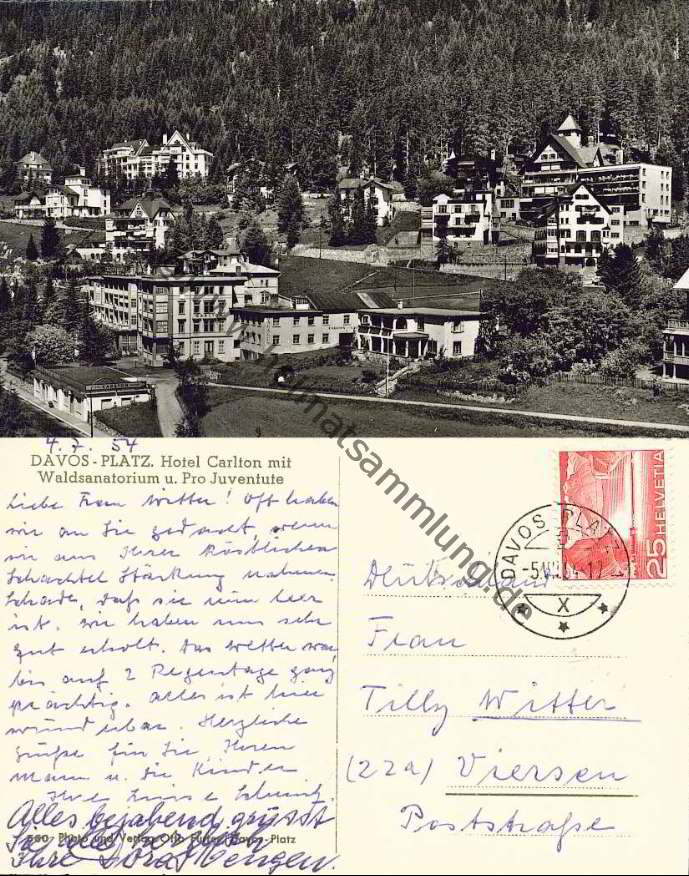 www.heimatsammlung.de
4. 7. 54
DAVOS - PLATZ. Hotel Carlton mit
Waldsanatorium u. Pro Juventute
Liebe Frau Witter! Oft haben
wir an Sie gedacht, wenn
wir aus Ihrer köstlichen
Schachtel Stärkung nahmen.
Schade, daß sie nun leer
ist. Wir haben uns sehr
gut erholt. Das Wetter war
bis auf 2 Regentage ganz
prächtig. Alles ist hier
wunderbar. Herzliche
Grüße für Sie, Ihren
Mann u. die Kinder
Ihre
Alles
grüsst
Sie
Ihre
560 Photo und Verlag Otto Furter, Davos-Platz
25 HELVETIA
DAVOS - PLATZ
X
Deutschland
Frau
Tilly Witter
(22a) Viersen
Poststraße